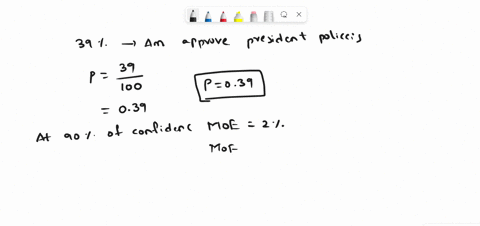 39 % → Am approve president policeis
P = 39/100
P = 0.39
= 0.39
At 90 % of confidenc MOE = 2 %.
MOE